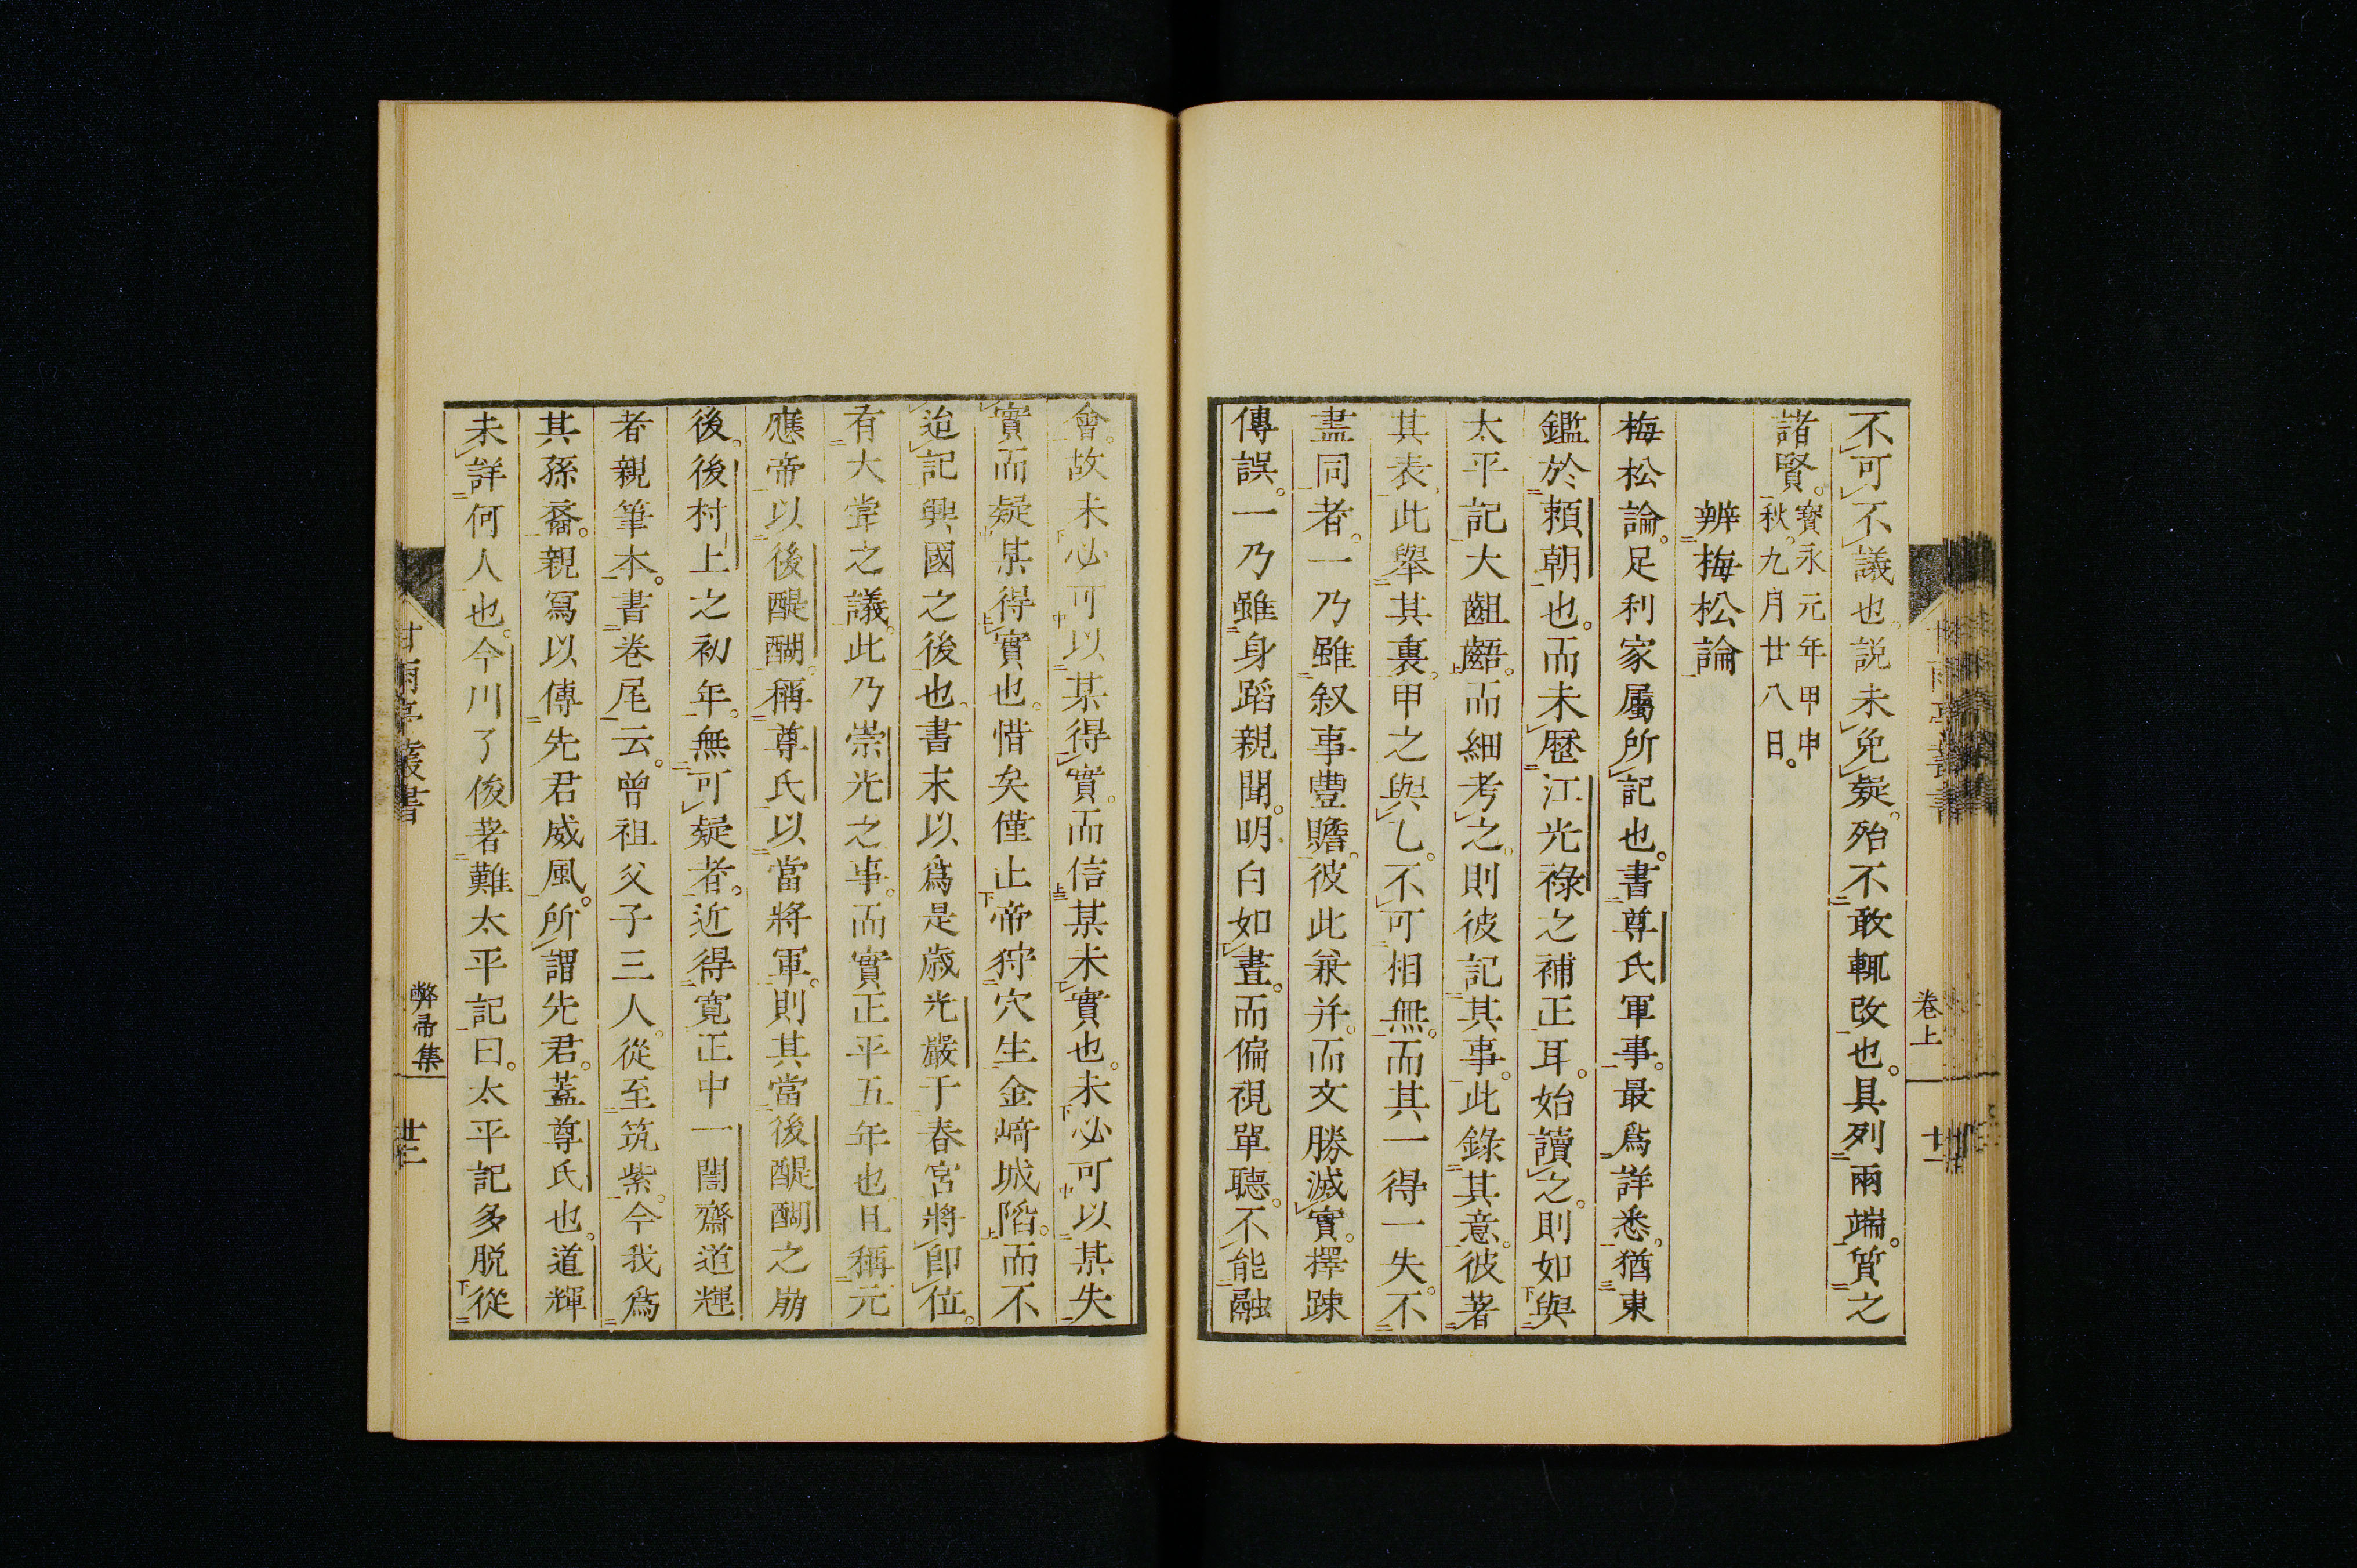 不可不議也。説未免疑。殆不敢輒改也。具列兩端。質之
諸賢。寶永元年甲申秋。九月廿八日。
辨梅松論
梅松論。足利家屬所記也。書尊氏軍事。最爲詳悉。猶東
鑑於頼朝也。而未歷江光祿之補正耳。始讀之。則如與
太平記大齟齬。而細考之。則彼記其事。此錄其意。彼著
其表、此擧其裏。甲之與乙。不可相無。而其一得一失。不
盡同者。一乃雖叙事豐贍。彼此兼并。而文勝滅實。擇踈
傳誤。一乃雖身蹈親聞。明白如晝。而偏視單聽。不能融
會。故未必可以某得實。而信某未實也。未必可以某失
實而疑某得實也。惜矣僅止帝狩穴生金﨑城陷。而不
迨記興國之後也。書末以爲是歲光嚴于春宮將卽位。
有大甞之議。此乃崇光之事。而實正平五年也且稱元
應帝以後醍醐。稱尊氏以當將軍。則其當後醍醐之崩
後。後村上之初年。無可疑者。近得寬正中一誾齋道輝
者親筆本。書卷尾云。曾祖父子三人。從至筑紫。今我爲
其孫裔。親寫以傳先君威風。所謂先君。蓋尊氏也。道輝
未詳何人也。今川了俊著難太平記曰。太平記多脱從
甘雨亭叢書
卷上
弊帚集